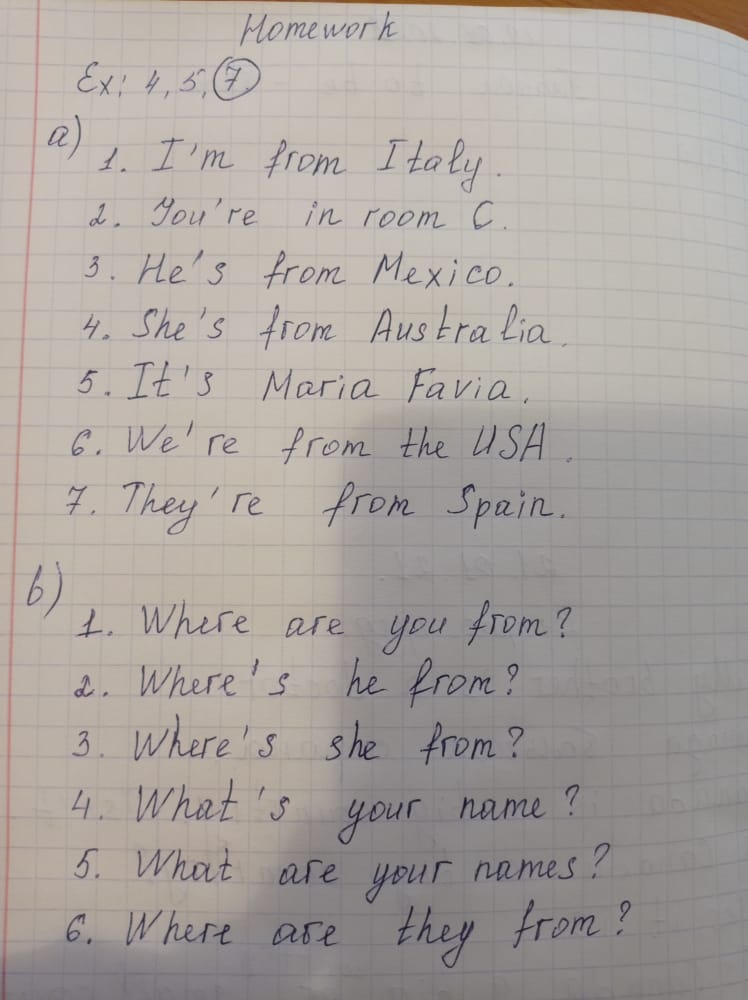 Homework
Ex: 4, 5, 7
a)
1. I'm from Italy.
2. You're in room C.
3. He's from Mexico.
4. She's from Australia.
5. It's Maria Favia.
6. We're from the USA.
7. They're from Spain.
b)
1. Where are you from?
2. Where's he from?
3. Where's she from?
4. What's your name?
5. What are your names?
6. Where are they from?